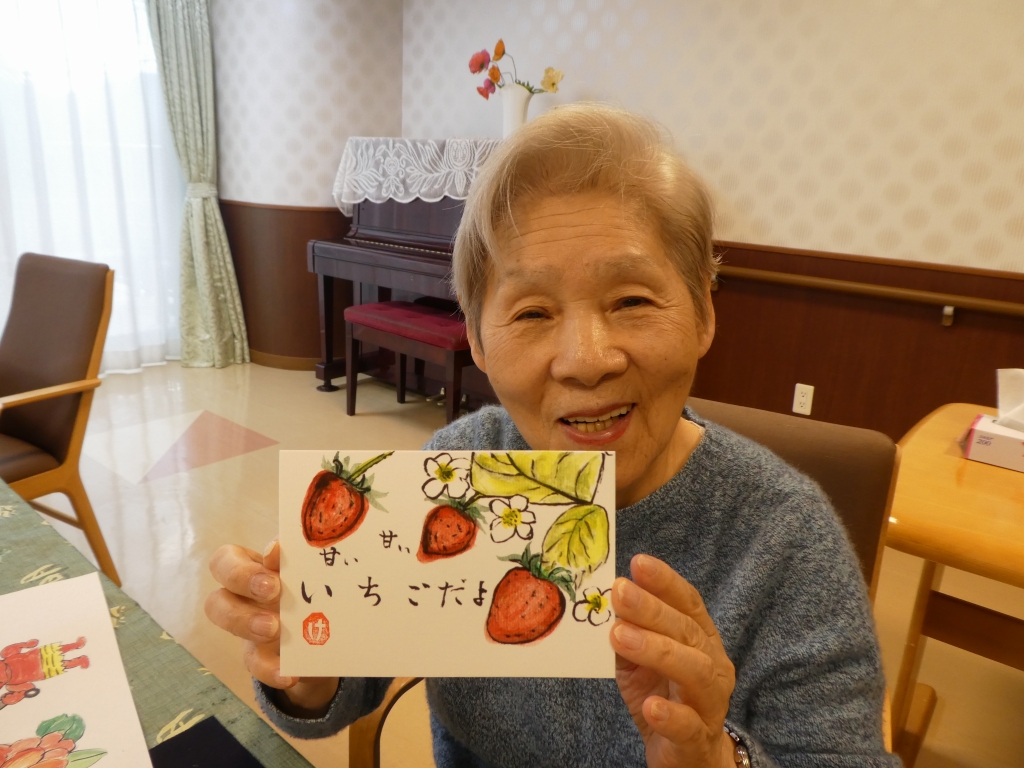 甘い 甘い
いちごだよ
け